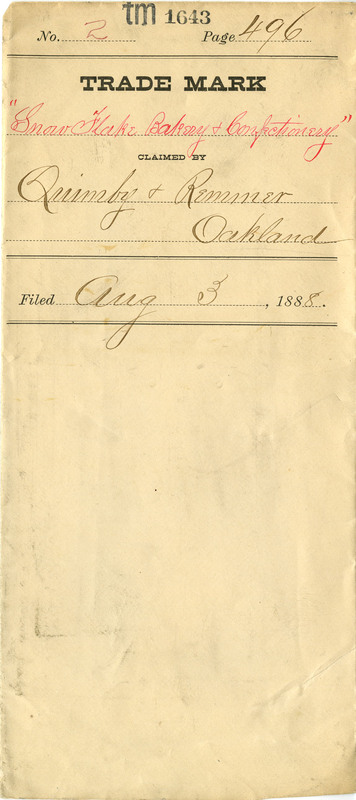 tm 1643
No. 2 Page 496
TRADE MARK
"Snow Flake Bakery & Confectionery"
CLAIMED BY
Quimby & Remmer
Oakland
Filed Aug 3, 1888.